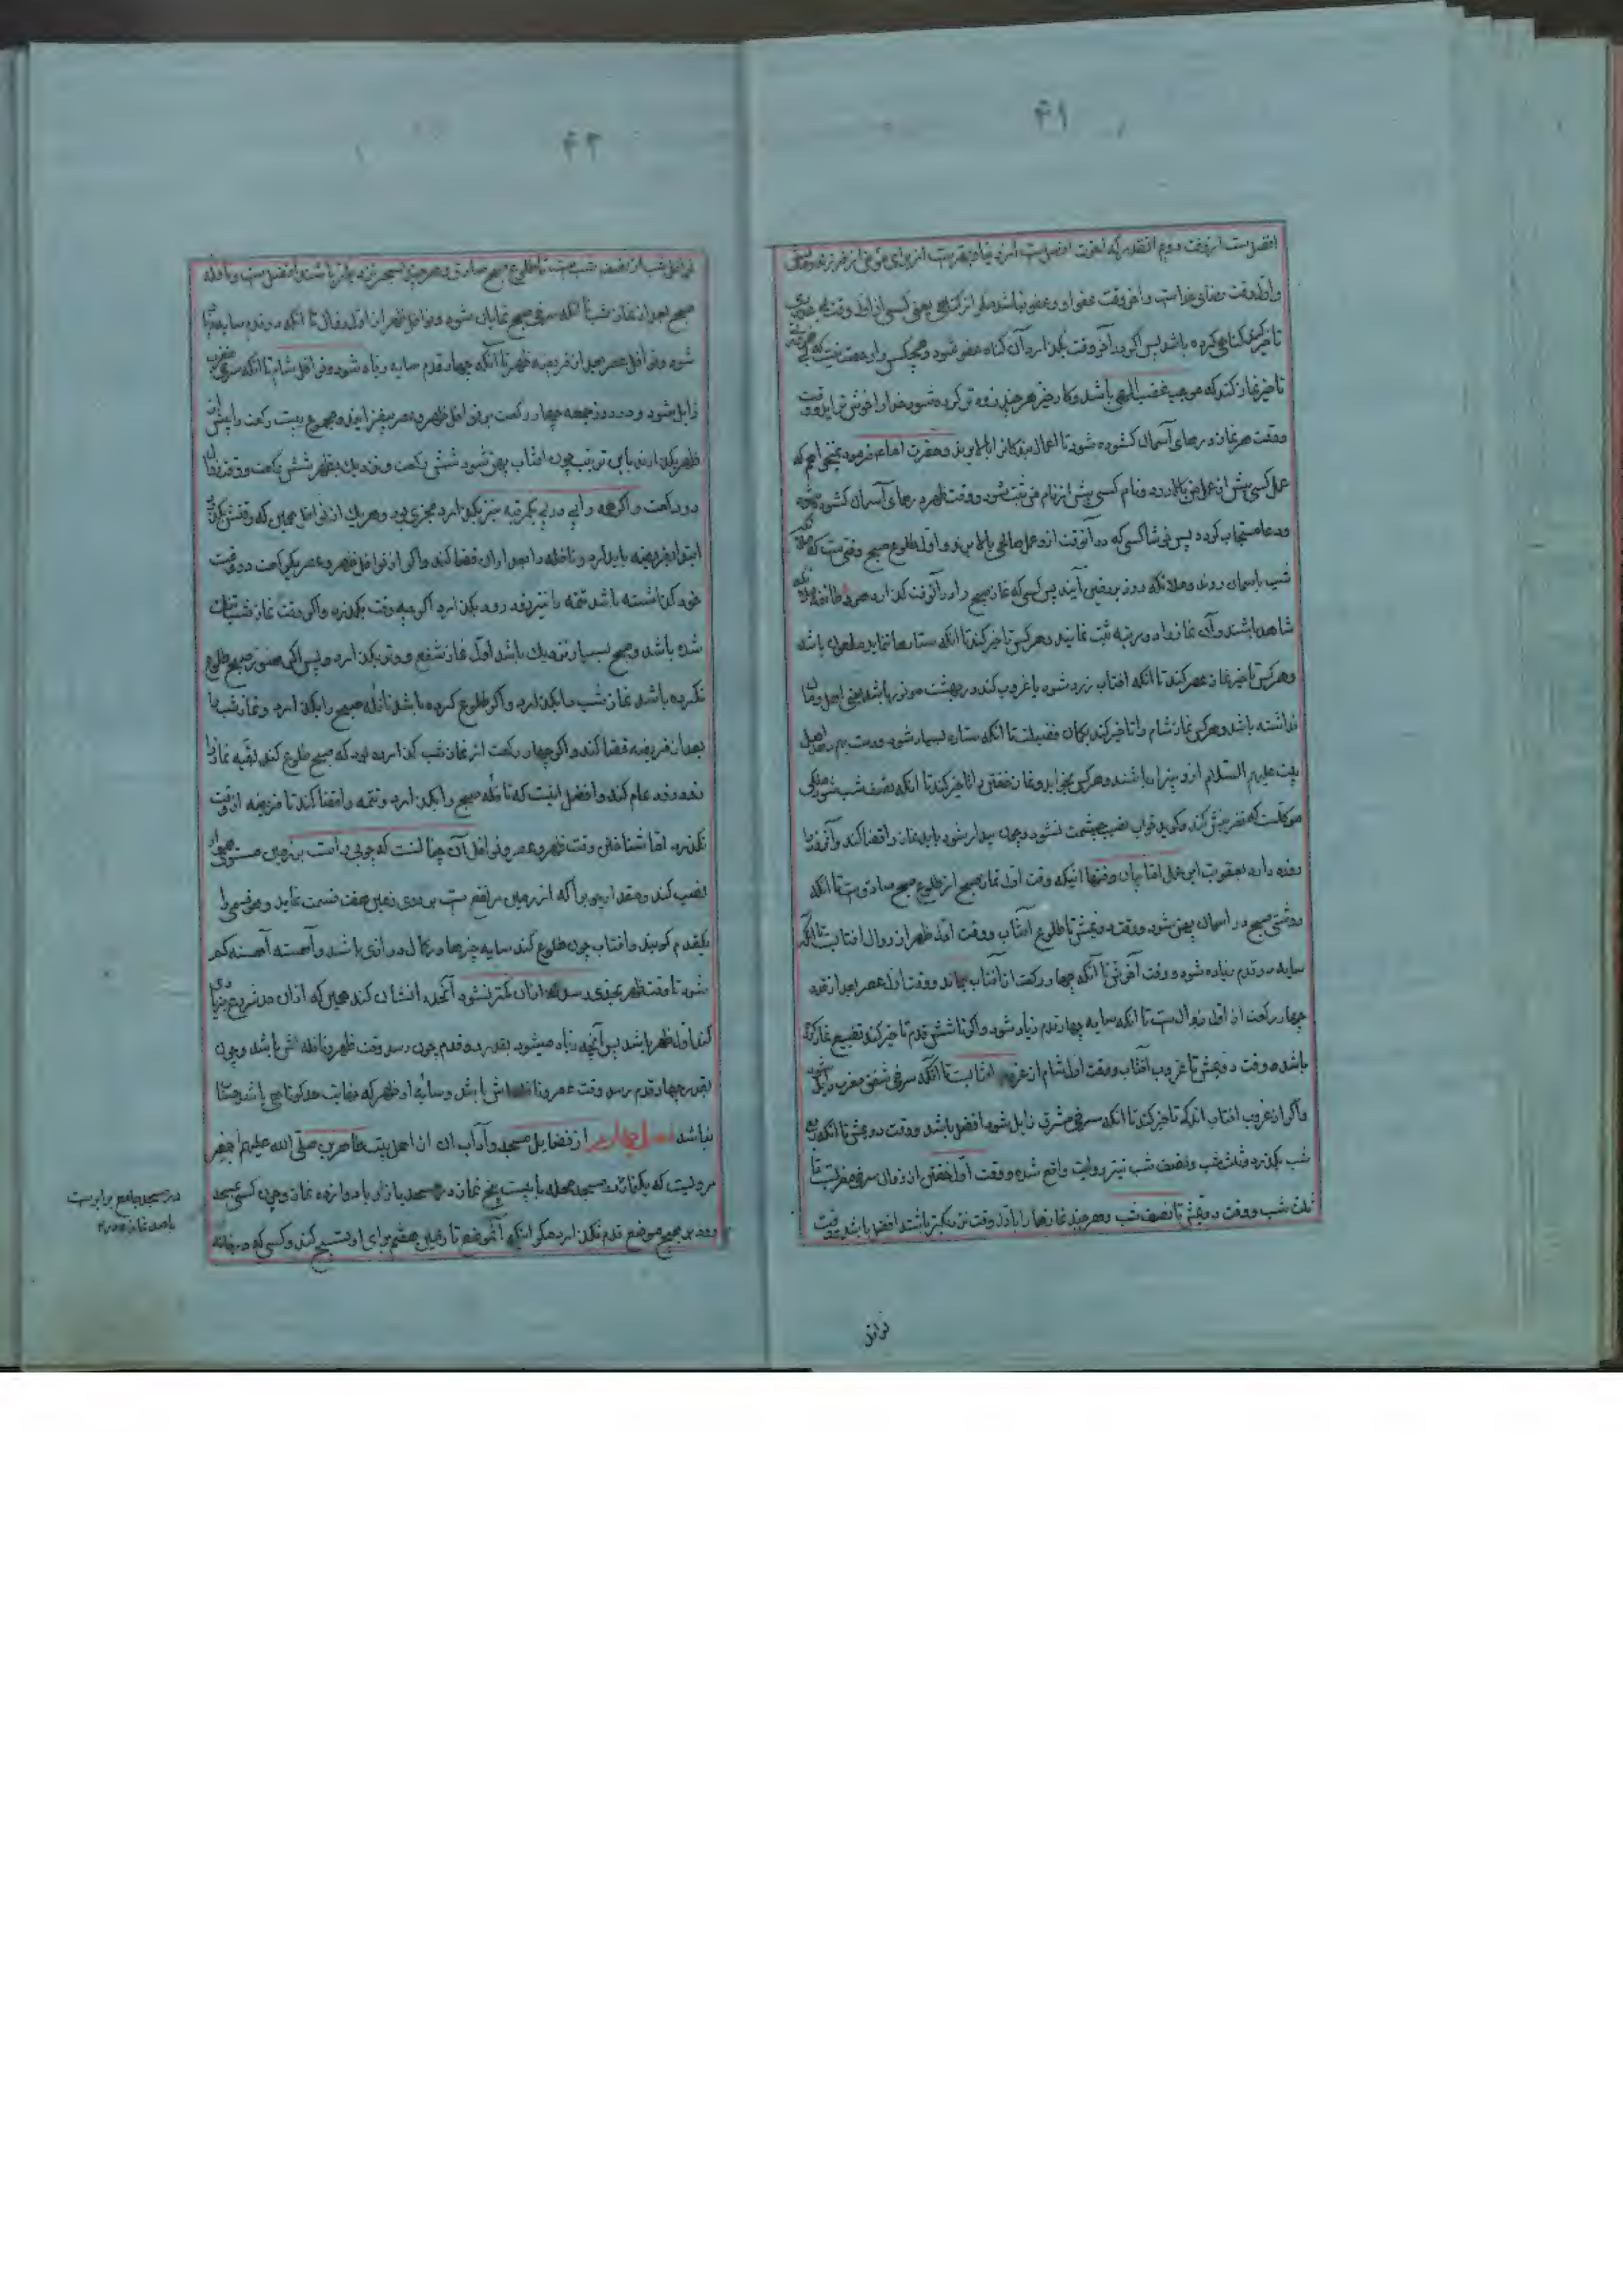 ۴۱
افضل است از وقت دوم آنقدر که آخرت افضل است از دنیا و بهتر است از برای مومن از فرزند و مالش
و اول وقت رضای خداست و آخر وقت عفو او و عفو نباشد مگر از گناهی یعنی کسی از اول وقت بی عذری
تاخیر کند گناهی کرده باشد پس اگر در آخر وقت بگذارد آن گناه عفو شود و هیچکس را رخصت نیست که
تاخیر نماز کند که موجب غضب الهی باشد و کار خیر هر چند زودتر کرده شود خدا را خوش تر آید و در
وقت هر نماز درهای آسمان گشوده شود تا اعمال بندگان را بالا برند و حضرت امام فرمود نمیخواهم که
عمل کسی پیش از عمل من بالا رود و نام کسی پیش از نام من ثبت شود و وقت ظهر درهای آسمان گشوده شود
و دعا مستجاب گردد پس خوشا کسی که در آنوقت ازو عمل صالحی بالا برند و اول طلوع صبح وقتی است که ملائکه
شب باسمان روند و ملائکه روز بزمین آیند پس کسی که نماز صبح را در آنوقت گذارد هر دو طائفه ملائکه
شاهد باشند و آن نماز را دو مرتبه ثبت نمایند و هر کس تاخیر کند تا آنکه ستارها نماید ملعون باشد
و هر کس تاخیر نماز عصر کند تا آنکه افتاب زرد شود یا غروب کند در بهشت موتور باشد یعنی اهل و مال
نداشته باشد و هر کس نماز شام را تاخیر کند بگمان فضیلت تا آنکه ستاره بسیار شود خدمت رسول و اهل
بیت علیهم السلام ازو بیزار باشند و هر کس بخوابد و نماز خفتن را تاخیر کند تا آنکه نصف شب شود ملکی
موکلست که نفرینش کند و گوید خواب نصیب چشمت نشود و چون بیدار شود باید نماز را قضا کند و آنروز را
روزه دارد بعقوبت این عمل اما بیان وقتها اینکه وقت اول نماز صبح از طلوع صبح صادق است تا آنکه
روشنی صبح در آسمان پهن شود و وقت دویمش تا طلوع آفتاب و وقت اول ظهر از زوال افتابست تا آنکه
سایه دو قدم زیاده شود و وقت آخرش تا آنکه چهار رکعت از آفتاب بماند و وقت اول عصر بعد از قدر
چهار رکعت از اول زوال است تا آنکه سایه چهار قدم زیاد شود و اگر تا شش قدم تاخیر کند تضییع نماز کرده
باشد و وقت دویمش تا غروب آفتاب و وقت اول شام از غروب افتابست تا آنکه سرخی شفق مغرب زایل شود
و اگر از غروب افتاب اندک تاخیر کند تا آنکه سرخی مشرق زایل شود افضل باشد و وقت دویمش تا آنکه ربع
شب بگذرد و ثلث شب و نصف شب نیز روایت واقع شده و وقت اول خفتن از زوال سرخی مغربست تا
ثلث شب و وقت دویمش تا نصف شب و هر چند نمازها را باول وقت نزدیکتر باشند افضل باشد و وقت
نوافل
۴۲
نوافل شب از نصف شب است تا طلوع صبح صادق و هر چند بسحر نزدیکتر باشد افضل است و نافله
صبح بعد از نماز شب تا آنکه سرخی صبح نمایان شود و نوافل ظهر از اول زوال تا آنکه دو قدم سایه زیاد
شود و نوافل عصر بعد از فریضه ظهر تا آنکه چهار قدم سایه زیاده شود و نوافل شام تا آنکه سرخی مغرب
زایل شود و در روز جمعه چهار رکعت بر نوافل ظهر و عصر بیفزایند و مجموع بیست رکعت را پیش از
ظهر بگذارند باین ترتیب چون افتاب پهن شود شش رکعت و نزدیک بظهر شش رکعت و وقت زوال
دو رکعت و اگر همه را پی در پی بیکمرتبه نیز بگذارد مجزی بود و هر یک از نوافل همین که وقتش بگذرد
ابتدا بفریضه باید کرد و نافله را بعد از آن قضا کند و اگر از نوافل ظهر و عصر یک رکعت در وقت
خود گذاشته باشد تتمه را نیز زود زود بگذارد اگر چه وقت بگذرد و اگر وقت نماز شب تنک
شده باشد و صبح بسیار نزدیک باشد اول نماز شفع و وتر بگذارد و پس اگر هنوز صبح طلوع
نکرده باشد نماز شب را بگذارد و اگر طلوع کرده باشد نافله صبح را بگذارد و نماز شب را
بعد از فریضه قضا کند و اگر چهار رکعت از نماز شب گذارده بود که صبح طلوع کند بقیه نماز را
زود زود تمام کند و افضل اینست که نافله صبح را بگذارد و تتمه را قضا کند تا فریضه از وقت
نگذرد اما شناختن وقت ظهر و عصر و نوافل آن چنانست که چوبی راست بر زمین مستوی هموار
نصب کند و مقدار چوب را که از زمین مرتفع است بر روی زمین هفت قسمت نماید و هر قسمی را
یکقدم گویند و افتاب چون طلوع کند سایه چیزها در کمال درازی باشد و آهسته آهسته کم
شود تا وقت ظهر بحدی رسد که از آن کمتر نشود آنحد را نشان کند همین که از آن حد شروع در زیادتی
کند اول ظهر باشد پس آنچه زیاد میشود بقدر دو قدم چون رسد وقت ظهر و نافله اش باشد و چون
بقدر چهار قدم رسد وقت عصر و نافله اش باشد و سایه اول ظهر که نهایت حد کوتاهی باشد حساب
نباشد فصل چهارم از فضایل مسجد و آداب آن از اهل بیت طاهرین صلی الله علیهم اجمعین
مرویست که یکنماز در مسجد محله با بیست پنج نماز در مسجد بازار با دوازده نماز و چون کسی بمسجد
رود بر هیچ موضع قدم نگذارد مگر اینکه آنموضع تا زمین هفتم برای او تسبیح کند و کسی که در خانه
در مسجد جامع برابر است
با صد نماز و در